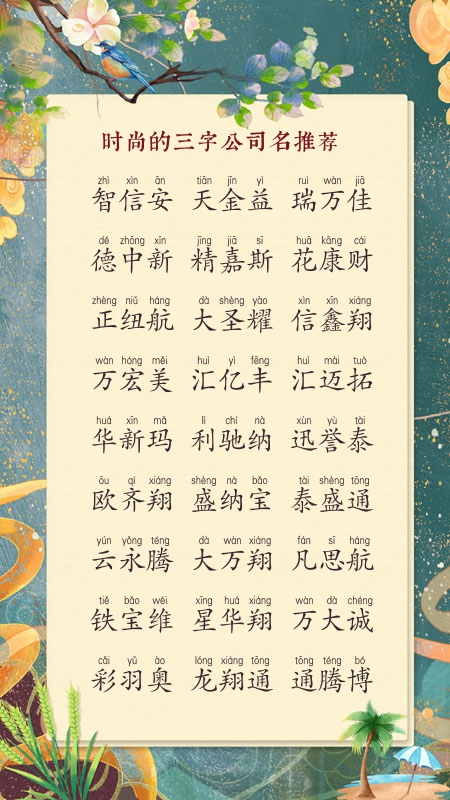 时尚的三字公司名推荐
zhì xìn ān tiān jīn yì ruì wàn jiā
智信安 天金益 瑞万佳
dé zhōng xīn jīng jiā sī huā kāng cái
德中新 精嘉斯 花康财
zhèng niǔ háng dà shèng yào xìn xīn xiáng
正纽航 大圣耀 信鑫翔
wàn hóng měi huì yì fēng huì mài tuò
万宏美 汇亿丰 汇迈拓
huá xīn mǎ lì chí nà xùn yù tài
华新玛 利驰纳 迅誉泰
ōu qí xiáng shèng nà bǎo tài shèng tōng
欧齐翔 盛纳宝 泰盛通
yún yǒng téng dà wàn xiáng fán sī háng
云永腾 大万翔 凡思航
tiě bǎo wéi xīng huá xiáng wàn dà chéng
铁宝维 星华翔 万大诚
cǎi yǔ ào lóng xiáng tōng tōng téng bó
彩羽奥 龙翔通 通腾博